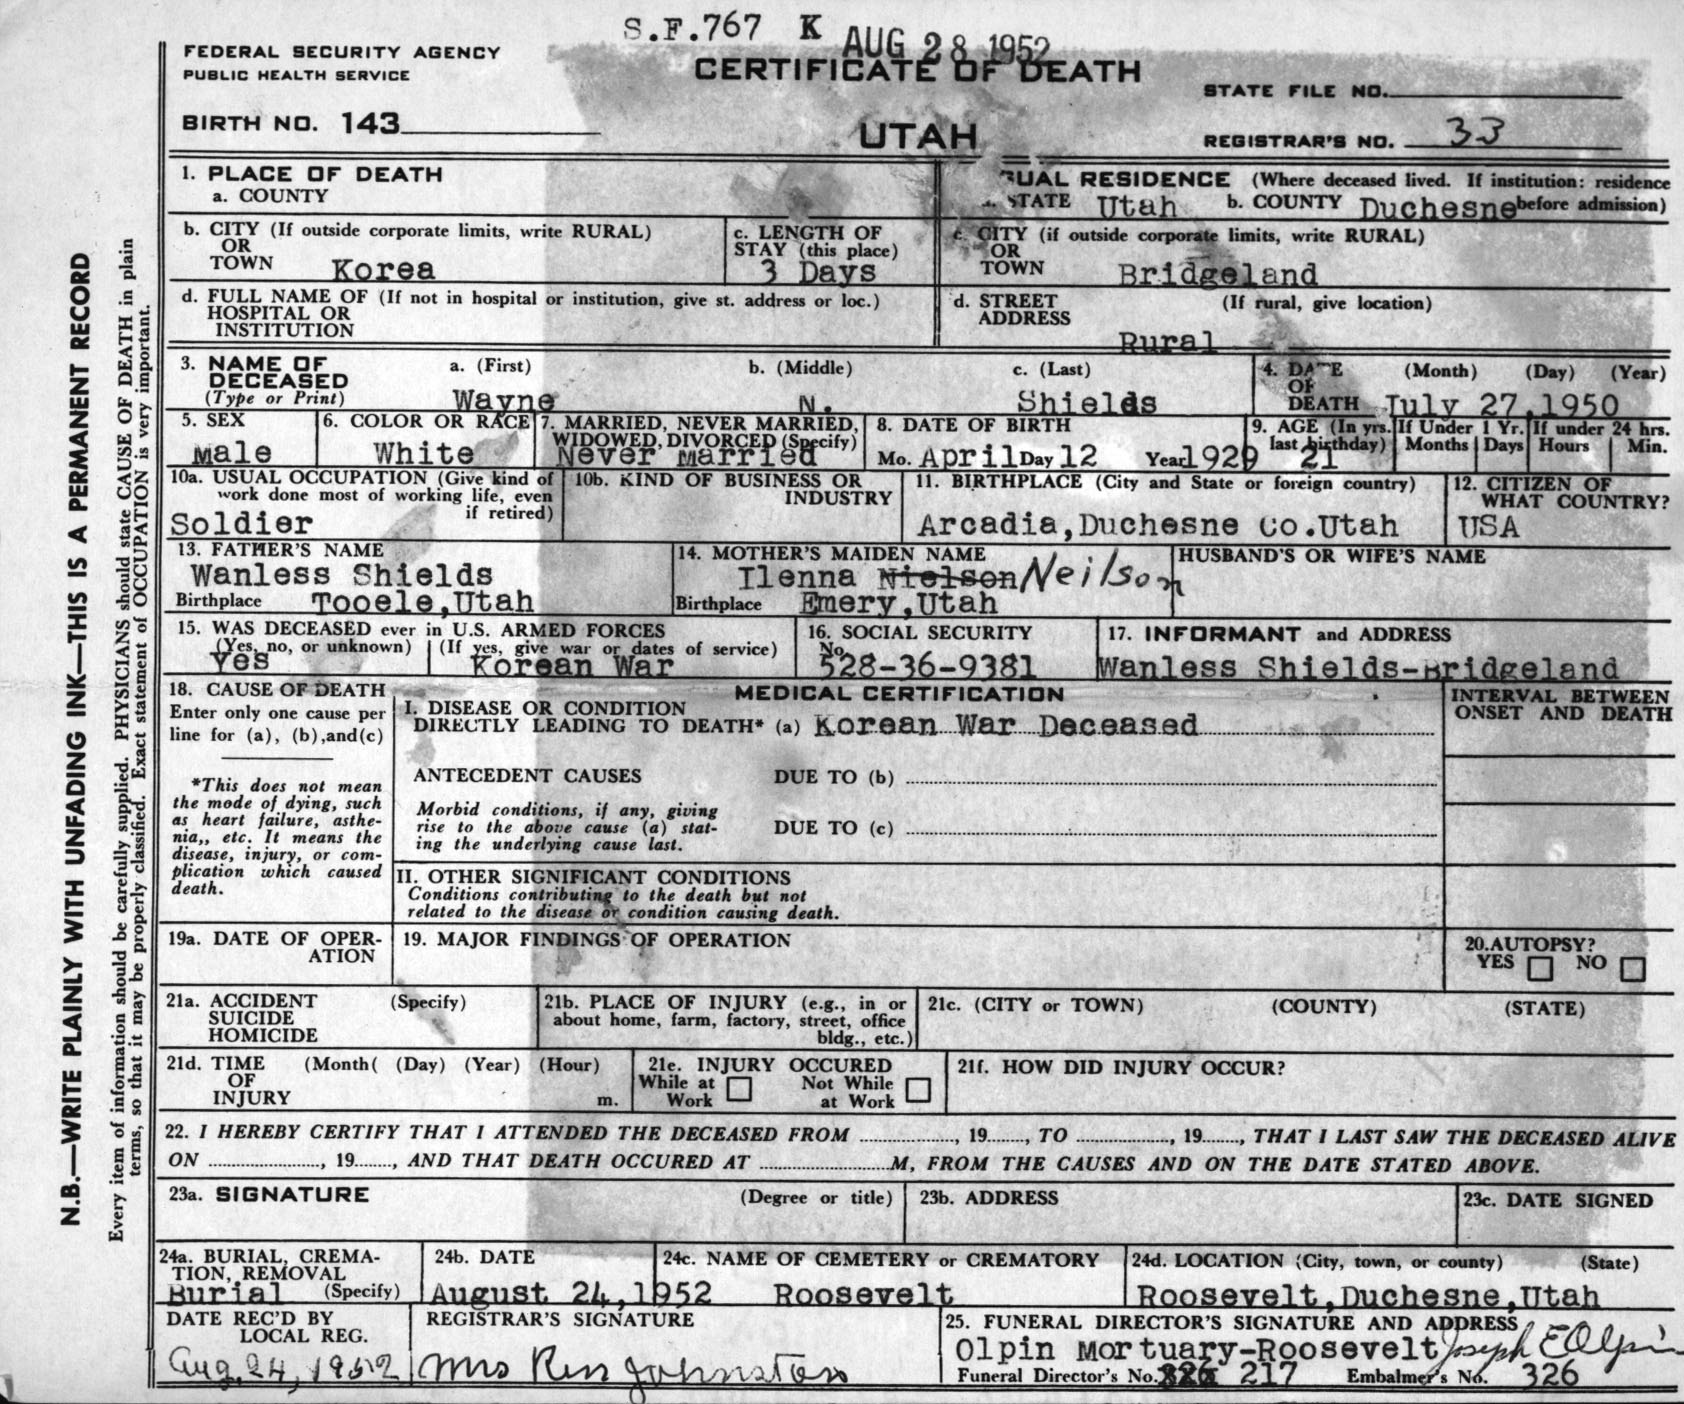 S.F.767 K AUG 28 1952
FEDERAL SECURITY AGENCY
PUBLIC HEALTH SERVICE
CERTIFICATE OF DEATH
STATE FILE NO.
BIRTH NO. 143
UTAH
REGISTRAR'S NO. 33
1. PLACE OF DEATH
a. COUNTY
UAL RESIDENCE (Where deceased lived. If institution: residence
STATE Utah b. COUNTY Duchesne before admission)
b. CITY (If outside corporate limits, write RURAL)
OR
TOWN Korea
c. LENGTH OF
STAY (this place)
3 Days
c. CITY (if outside corporate limits, write RURAL)
OR
TOWN Bridgeland
d. FULL NAME OF (If not in hospital or institution, give st. address or loc.)
HOSPITAL OR
INSTITUTION
d. STREET (If rural, give location)
ADDRESS
Rural
3. NAME OF a. (First) b. (Middle) c. (Last)
DECEASED
(Type or Print) Wayne N. Shields
4. DATE (Month) (Day) (Year)
OF
DEATH July 27,1950
5. SEX
Male
6. COLOR OR RACE
White
7. MARRIED, NEVER MARRIED,
WIDOWED, DIVORCED (Specify)
Never Married
8. DATE OF BIRTH
Mo. April Day 12 Year 1929
9. AGE (In yrs.
last birthday) 21
If Under 1 Yr.
Months Days
If under 24 hrs.
Hours Min.
10a. USUAL OCCUPATION (Give kind of
work done most of working life, even
if retired)
Soldier
10b. KIND OF BUSINESS OR
INDUSTRY
11. BIRTHPLACE (City and State or foreign country)
Arcadia,Duchesne Co.Utah
12. CITIZEN OF
WHAT COUNTRY?
USA
13. FATHER'S NAME
Wanless Shields
Birthplace Tooele,Utah
14. MOTHER'S MAIDEN NAME
Ilenna Nielson Neilson
Birthplace Emery,Utah
HUSBAND'S OR WIFE'S NAME
15. WAS DECEASED ever in U.S. ARMED FORCES
(Yes, no, or unknown) (If yes, give war or dates of service)
Yes Korean War
16. SOCIAL SECURITY
No.
528-36-9381
17. INFORMANT and ADDRESS
Wanless Shields-Bridgeland
18. CAUSE OF DEATH
Enter only one cause per
line for (a), (b),and(c)
*This does not mean
the mode of dying, such
as heart failure, asthe-
nia,, etc. It means the
disease, injury, or com-
plication which caused
death.
MEDICAL CERTIFICATION
I. DISEASE OR CONDITION
DIRECTLY LEADING TO DEATH* (a) Korean War Deceased
ANTECEDENT CAUSES DUE TO (b)
Morbid conditions, if any, giving
rise to the above cause (a) stat-
ing the underlying cause last.
DUE TO (c)
INTERVAL BETWEEN
ONSET AND DEATH
II. OTHER SIGNIFICANT CONDITIONS
Conditions contributing to the death but not
related to the disease or condition causing death.
19a. DATE OF OPER-
ATION
19. MAJOR FINDINGS OF OPERATION
20.AUTOPSY?
YES NO
21a. ACCIDENT (Specify)
SUICIDE
HOMICIDE
21b. PLACE OF INJURY (e.g., in or
about home, farm, factory, street, office
bldg., etc.)
21c. (CITY or TOWN) (COUNTY) (STATE)
21d. TIME (Month( (Day) (Year) (Hour)
OF
INJURY m.
21e. INJURY OCCURED
While at Work
Not While at Work
21f. HOW DID INJURY OCCUR?
22. I HEREBY CERTIFY THAT I ATTENDED THE DECEASED FROM ..............., 19......., TO ..............., 19......., THAT I LAST SAW THE DECEASED ALIVE
ON ..................., 19......., AND THAT DEATH OCCURED AT ......................M, FROM THE CAUSES AND ON THE DATE STATED ABOVE.
23a. SIGNATURE (Degree or title)
23b. ADDRESS
23c. DATE SIGNED
24a. BURIAL, CREMA-
TION, REMOVAL
Burial (Specify)
24b. DATE
August 24,1952
24c. NAME OF CEMETERY or CREMATORY
Roosevelt
24d. LOCATION (City, town, or county) (State)
Roosevelt,Duchesne,Utah
DATE REC'D BY
LOCAL REG.
Aug. 24, 1952
REGISTRAR'S SIGNATURE
Mrs Ren Johnston
25. FUNERAL DIRECTOR'S SIGNATURE AND ADDRESS
Olpin Mortuary-Roosevelt Joseph E Olpin
Funeral Director's No. 217 Embalmer's No. 326
N.B.—WRITE PLAINLY WITH UNFADING INK—THIS IS A PERMANENT RECORD
Every item of information should be carefully supplied. PHYSICIANS should state CAUSE OF DEATH in plain
terms, so that it may be properly classified. Exact statement of OCCUPATION is very important.